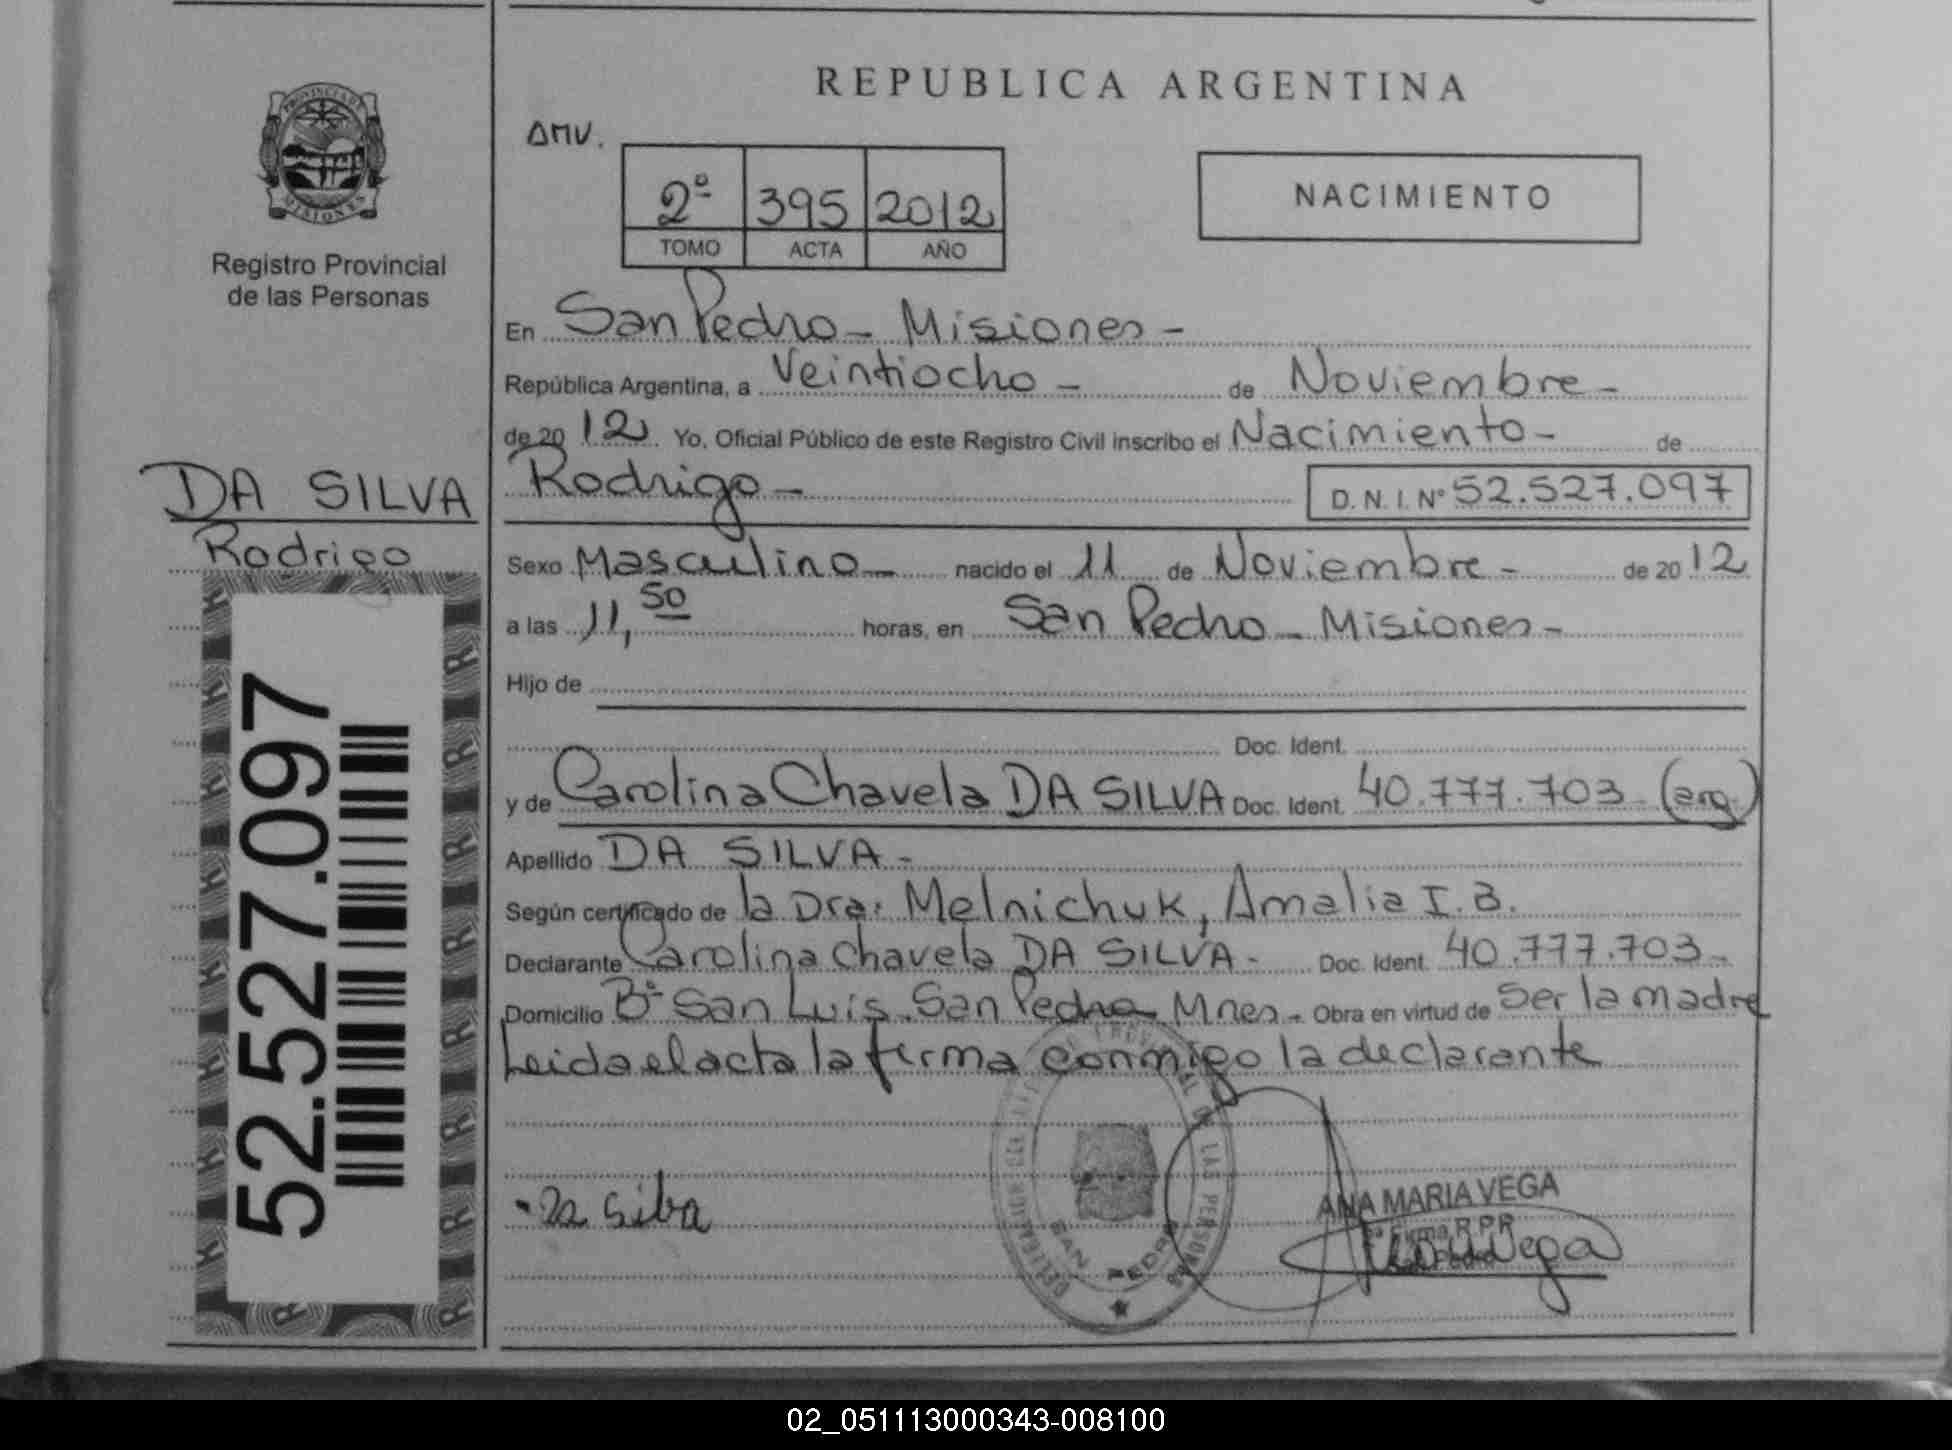 REPUBLICA ARGENTINA
PROVINCIA DE
MISIONES
Registro Provincial
de las Personas
AMV.
2º 395 2012
TOMO ACTA AÑO
NACIMIENTO
En San Pedro - Misiones -
República Argentina, a Veintiocho - de Noviembre -
de 20 12 Yo, Oficial Público de este Registro Civil inscribo el Nacimiento - de
Rodrigo - D. N. I. Nº 52.527.097
DA SILVA
Rodrigo
52.527.097
Sexo Masculino - nacido el 11 de Noviembre - de 20 12
a las 11,50 horas, en San Pedro - Misiones -
Hijo de
Doc. Ident.
y de Carolina Chavela DA SILVA Doc. Ident. 40.777.703 - (arg.)
Apellido DA SILVA -
Según certificado de la Dra: Melnichuk, Amalia I.B.
Declarante Carolina Chavela DA SILVA - Doc. Ident. 40.777.703 -
Domicilio Bº San Luis. San Pedro - Mnes - Obra en virtud de Ser la madre
Leida el acta la firma conmigo la declarante
PROVINCIAL DE LAS PERSONAS
SAN PEDRO
Da Silva
ANA MARIA VEGA
Firma R.P.P.
San Pedro
Vega
02_051113000343-008100